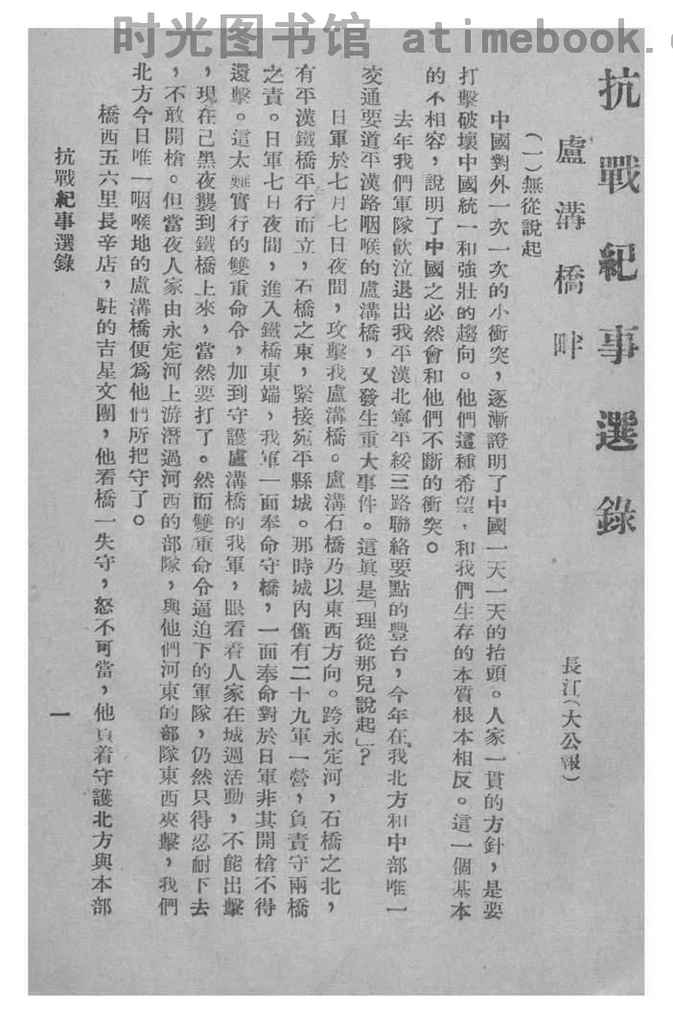 时光图书馆 atimebook.c
抗戰紀事選錄
盧溝橋畔
長江（大公報）
（一）無從說起
中國對外一次一次的小衝突，逐漸證明了中國一天一天的抬頭。人家一貫的方針，是要
打擊破壞中國統一和強壯的趨向。他們這種希望，和我們生存的本質根本相反。這一個基本
的不相容，說明了中國之必然會和他們不斷的衝突。
去年我們軍隊飲泣退出我平漢北寧平綏三路聯絡要點的豐台，今年在我北方和中部唯一
交通要道平漢路咽喉的盧溝橋，又發生重大事件。這真是「理從那兒說起」？
日軍於七月七日夜間，攻擊我盧溝橋。盧溝石橋乃以東西方向。跨永定河，石橋之北，
有平漢鐵橋平行而立，石橋之東，緊接宛平縣城。那時城內僅有二十九軍一營，負責守兩橋
之責。日軍七日夜間，進入鐵橋東端，我軍一面奉命守橋，一面奉命對於日軍非其開槍不得
還擊。這太難實行的雙重命令，加到守護盧溝橋的我軍，眼看着人家在城週活動，不能出擊
，現在己黑夜襲到鐵橋上來，當然要打了。然而雙重命令逼迫下的軍隊，仍然只得忍耐下去
，不敢開槍。但當夜人家由永定河上游潛過河西的部隊，與他們河東的部隊東西夾擊，我們
北方今日唯一咽喉地的盧溝橋便爲他們所把守了。
橋西五六里長辛店，駐的吉星文團，他看橋一失守，怒不可當，他負着守護北方與本部
抗戰紀事選錄
一